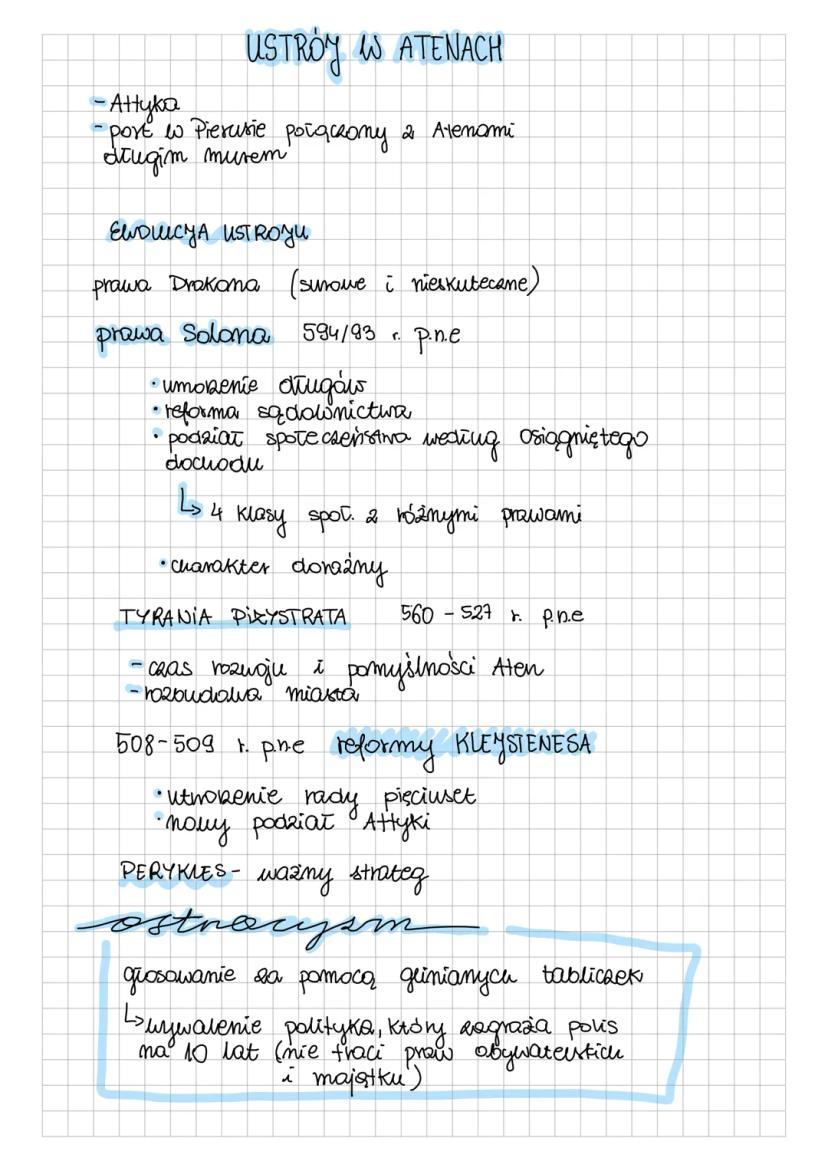 USTRÓJ W ATENACH
- Attyka
- port w Pierusie połączony z Atenami
długim murem
EWOLUCJA USTROJU
prawa Drakona (surowe i nieskuteczne)
prawa Solona 594/93 r. p.n.e
• umorzenie długów
• reforma sądownictwa
• podział społeczeństwa według osiągniętego
dochodu
↳ 4 klasy społ. z różnymi prawami
• charakter doraźny
TYRANIA PIZYSTRATA 560 - 527 r. p.n.e
- czas rozwoju i pomyślności Aten
- rozbudowa miasta
508-509 r. p.n.e reformy KLEJSTENESA
• utworzenie rady pięciuset
• nowy podział Attyki
PERYKLES - ważny strateg
ostracyzm
głosowanie za pomocą glinianych tabliczek
↳ wywalenie polityka, który zagraża polis
na 10 lat (nie traci praw obywatelskich
i majątku)